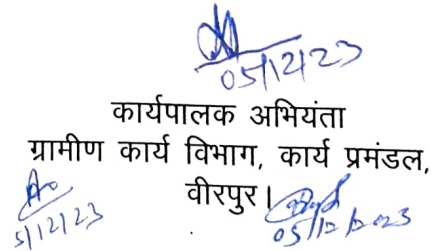 05/12/23
कार्यपालक अभियंता
ग्रामीण कार्य विभाग, कार्य प्रमंडल,
वीरपुर।
5/12/23
05/12/2023